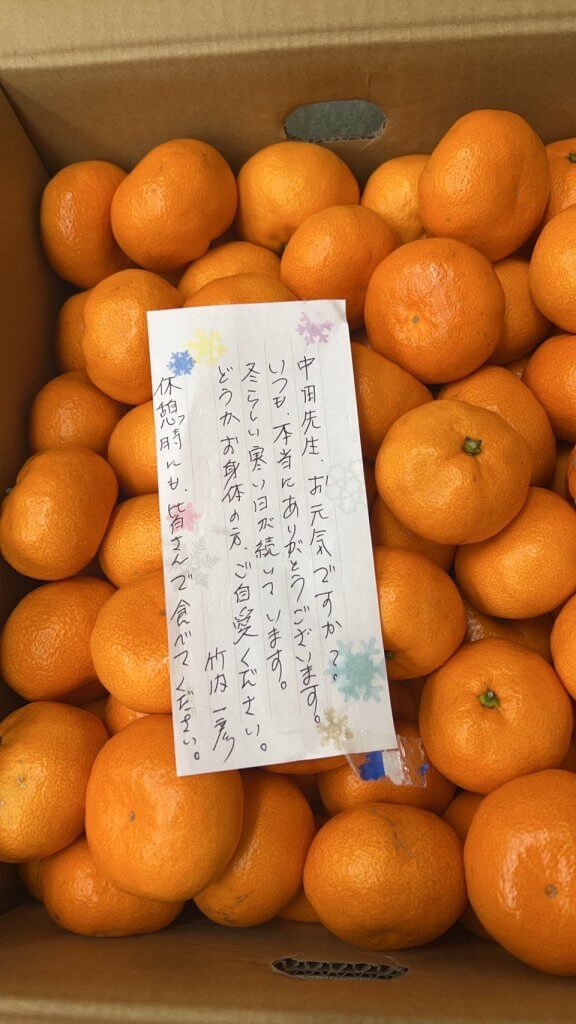 中田先生、お元気ですか?。
いつも、本当にありがとうございます。
冬らしい寒い日が続いています。
どうかお身体の方、ご自愛ください。
竹内一彦
休憩時にも、皆さんで食べてください。